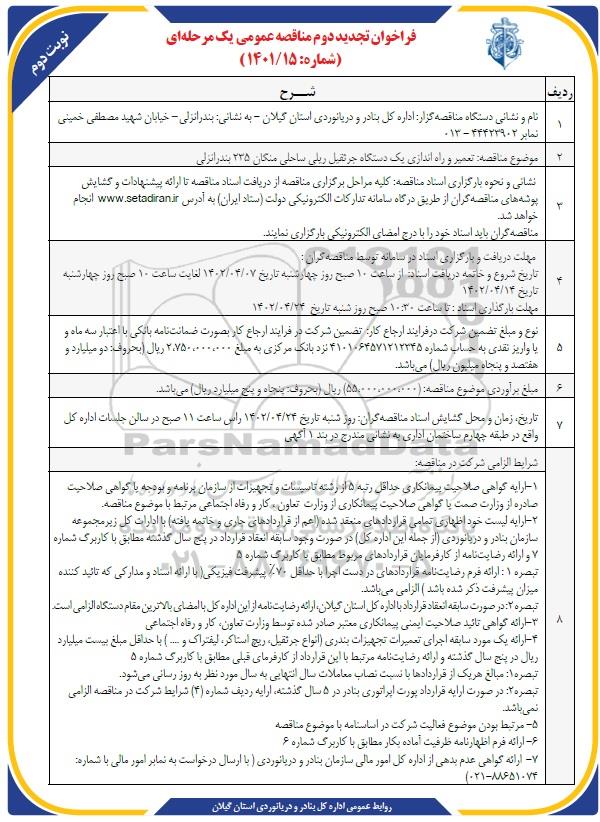 نوبت دوم
فراخوان تجدید دوم مناقصه عمومی یک مرحله‌ای
(شماره: ۱۴۰۱/۱۵)
ردیف
شـــرح
۱
نام و نشانی دستگاه مناقصه‌گزار: اداره کل بنادر و دریانوردی استان گیلان – به نشانی: بندرانزلی – خیابان شهید مصطفی خمینی
نمابر ۴۴۴۲۳۹۰۲ – ۰۱۳
۲
موضوع مناقصه: تعمیر و راه اندازی یک دستگاه جرثقیل ریلی ساحلی منکان ۲۳۵ بندرانزلی
۳
نشانی و نحوه بارگزاری اسناد مناقصه: کلیه مراحل برگزاری مناقصه از دریافت اسناد مناقصه تا ارائه پیشنهادات و گشایش
پوشه‌های مناقصه‌گران از طریق درگاه سامانه تدارکات الکترونیکی دولت (ستاد ایران) به آدرس www.setadiran.ir انجام
خواهد شد.
مناقصه‌گران باید اسناد خود را با درج امضای الکترونیکی بارگزاری نمایند.
۴
مهلت دریافت و بارگزاری اسناد در سامانه توسط مناقصه‌گران :
تاریخ شروع و خاتمه دریافت اسناد: از ساعت ۱۰ صبح روز چهارشنبه تاریخ ۱۴۰۲/۰۴/۰۷ لغایت ساعت ۱۰ صبح روز چهارشنبه
تاریخ ۱۴۰۲/۰۴/۱۴
مهلت بارگذاری اسناد : تا ساعت ۱۰:۳۰ صبح روز شنبه تاریخ ۱۴۰۲/۰۴/۲۴
۵
نوع و مبلغ تضمین شرکت درفرایند ارجاع کار: تضمین شرکت در فرایند ارجاع کار بصورت ضمانت‌نامه بانکی با اعتبار سه ماه و
یا واریز نقدی به حساب شماره ۴۱۰۱۰۶۴۵۷۱۲۱۲۳۴۵ نزد بانک مرکزی به مبلغ ۲.۷۵۰.۰۰۰.۰۰۰ ریال (بحروف: دو میلیارد و
هفتصد و پنجاه میلیون ریال) می‌باشد.
۶
مبلغ برآوردی موضوع مناقصه: (۵۵،۰۰۰،۰۰۰،۰۰۰) ریال (بحروف: پنجاه و پنج میلیارد ریال) می‌باشد.
۷
تاریخ، زمان و محل گشایش اسناد مناقصه‌گران: روز شنبه تاریخ ۱۴۰۲/۰۴/۲۴ راس ساعت ۱۱ صبح در سالن جلسات اداره کل
واقع در طبقه چهارم ساختمان اداری به نشانی مندرج در بند ۱ آگهی
۸
شرایط الزامی شرکت در مناقصه:
۱–ارایه گواهی صلاحیت پیمانکاری حداقل رتبه ۵ از رشته تاسیسات و تجهیزات از سازمان برنامه و بودجه یا گواهی صلاحیت
صادره از وزارت صمت یا گواهی صلاحیت پیمانکاری از وزارت تعاون ، کار و رفاه اجتماعی مرتبط با موضوع مناقصه.
۲–ارایه لیست خود اظهاری تمامی قراردادهای منعقد شده (اعم از قراردادهای جاری و خاتمه یافته) با ادارات کل زیرمجموعه
سازمان بنادر و دریانوردی (از جمله این اداره کل) در صورت وجود سابقه انعقاد قرارداد در پنج سال گذشته مطابق با کاربرگ شماره
۷ و ارائه رضایت‌نامه از کارفرمایان قراردادهای مربوط مطابق با کاربرگ شماره ۵
تبصره ۱ : ارائه فرم رضایت‌نامه قراردادهای در دست اجرا با حداقل ۷۰٪ پیشرفت فیزیکی( با ارائه اسناد و مدارکی که تائید کننده
میزان پیشرفت ذکر شده باشد ) الزامی می‌باشد.
تبصره۲: در صورت سابقه انعقاد قرارداد با اداره کل استان گیلان، ارائه رضایت‌نامه از این اداره کل با امضای بالاترین مقام دستگاه الزامی است.
۳–ارائه گواهی تائید صلاحیت ایمنی پیمانکاری معتبر صادر شده توسط وزارت تعاون، کار و رفاه اجتماعی
۴–ارائه یک مورد سابقه اجرای تعمیرات تجهیزات بندری (انواع جرثقیل، ریچ استاکر، لیفتراک و .... ) با حداقل مبلغ بیست میلیارد
ریال در پنج سال گذشته و ارائه رضایت‌نامه مرتبط با این قرارداد از کارفرمای قبلی مطابق با کاربرگ شماره ۵
تبصره۱: مبالغ هریک از قراردادها با نسبت نصاب معاملات سال انتهایی به سال مورد نظر به روز رسانی می‌شود.
تبصره۲: در صورت ارایه قرارداد پورت اپراتوری بنادر در ۵ سال گذشته، ارایه ردیف شماره (۴) شرایط شرکت در مناقصه الزامی
نمی‌باشد.
۵– مرتبط بودن موضوع فعالیت شرکت در اساسنامه با موضوع مناقصه
۶– ارائه فرم اظهارنامه ظرفیت آماده بکار مطابق با کاربرگ شماره ۶
۷– ارائه گواهی عدم بدهی از اداره کل امور مالی سازمان بنادر و دریانوردی ( با ارسال درخواست به نمابر امور مالی با شماره:
۸۸۶۵۱۰۷۴–۰۲۱)
روابط عمومی اداره کل بنادر و دریانوردی استان گیلان
ParsNamadData